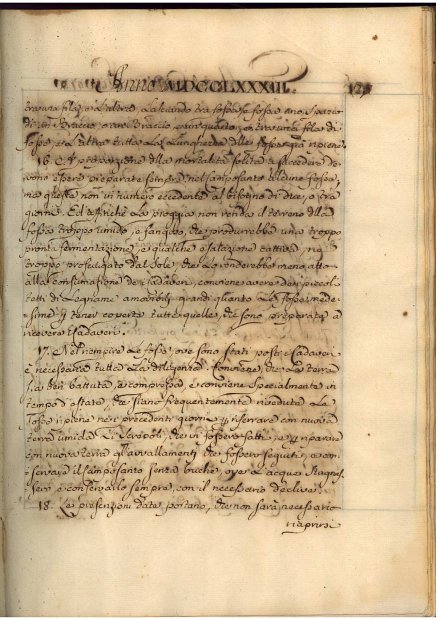 Anno MDCCLXXXIII.
tra una fila, e l'altra. Lasciando tra fossa, e fossa uno spazio
di un Braccio, o un Braccio, e un quarto, e tra una fila di
fosse, e l'altra tutta la lunghezza delle fosse già ripiene.
16. A proporzione della mortalità solita a succedere de-
vono essere preparate sempre nel Camposanto alcune fosse,
ma queste non in numero eccedente al bisogno di due, o tre
giorni. Ed affinchè la pioggia non renda il terreno della
fossa troppo umido, e fangoso, che produrrebbe una troppo
pronta fermentazione, e qualche esalazione cattiva, nè
troppo prosciugato dal Sole, che lo renderebbe meno atto
alla consumazione dei Cadaveri, conviene avere dei piccoli
tetti di Legname amovibili grandi quanto le fosse mede-
sime per tener coperte tutte quelle, che sono preparate a
ricevere i Cadaveri.
17. Nel riempire le fosse, ove sono stati posti i Cadaveri
è necessaria tutta la diligenza. Conviene, che la terra
sia ben battuta, e compressa, e conviene specialmente in
tempo d'estate, che siano frequentemente rivedute le
fosse ripiene nei precedenti giorni per riserrare con nuova
terra umida i screpoli, che vi fossero fatti, e per riparare
con nuova terra gli avvallamenti, che fossero seguiti, e con-
servare il Camposanto senza buche, ove l'acqua stagnas-
se, e conservarlo sempre con il necessario declive.
18. Le precauzioni date portano, che non sarà necessario
riaprirsi